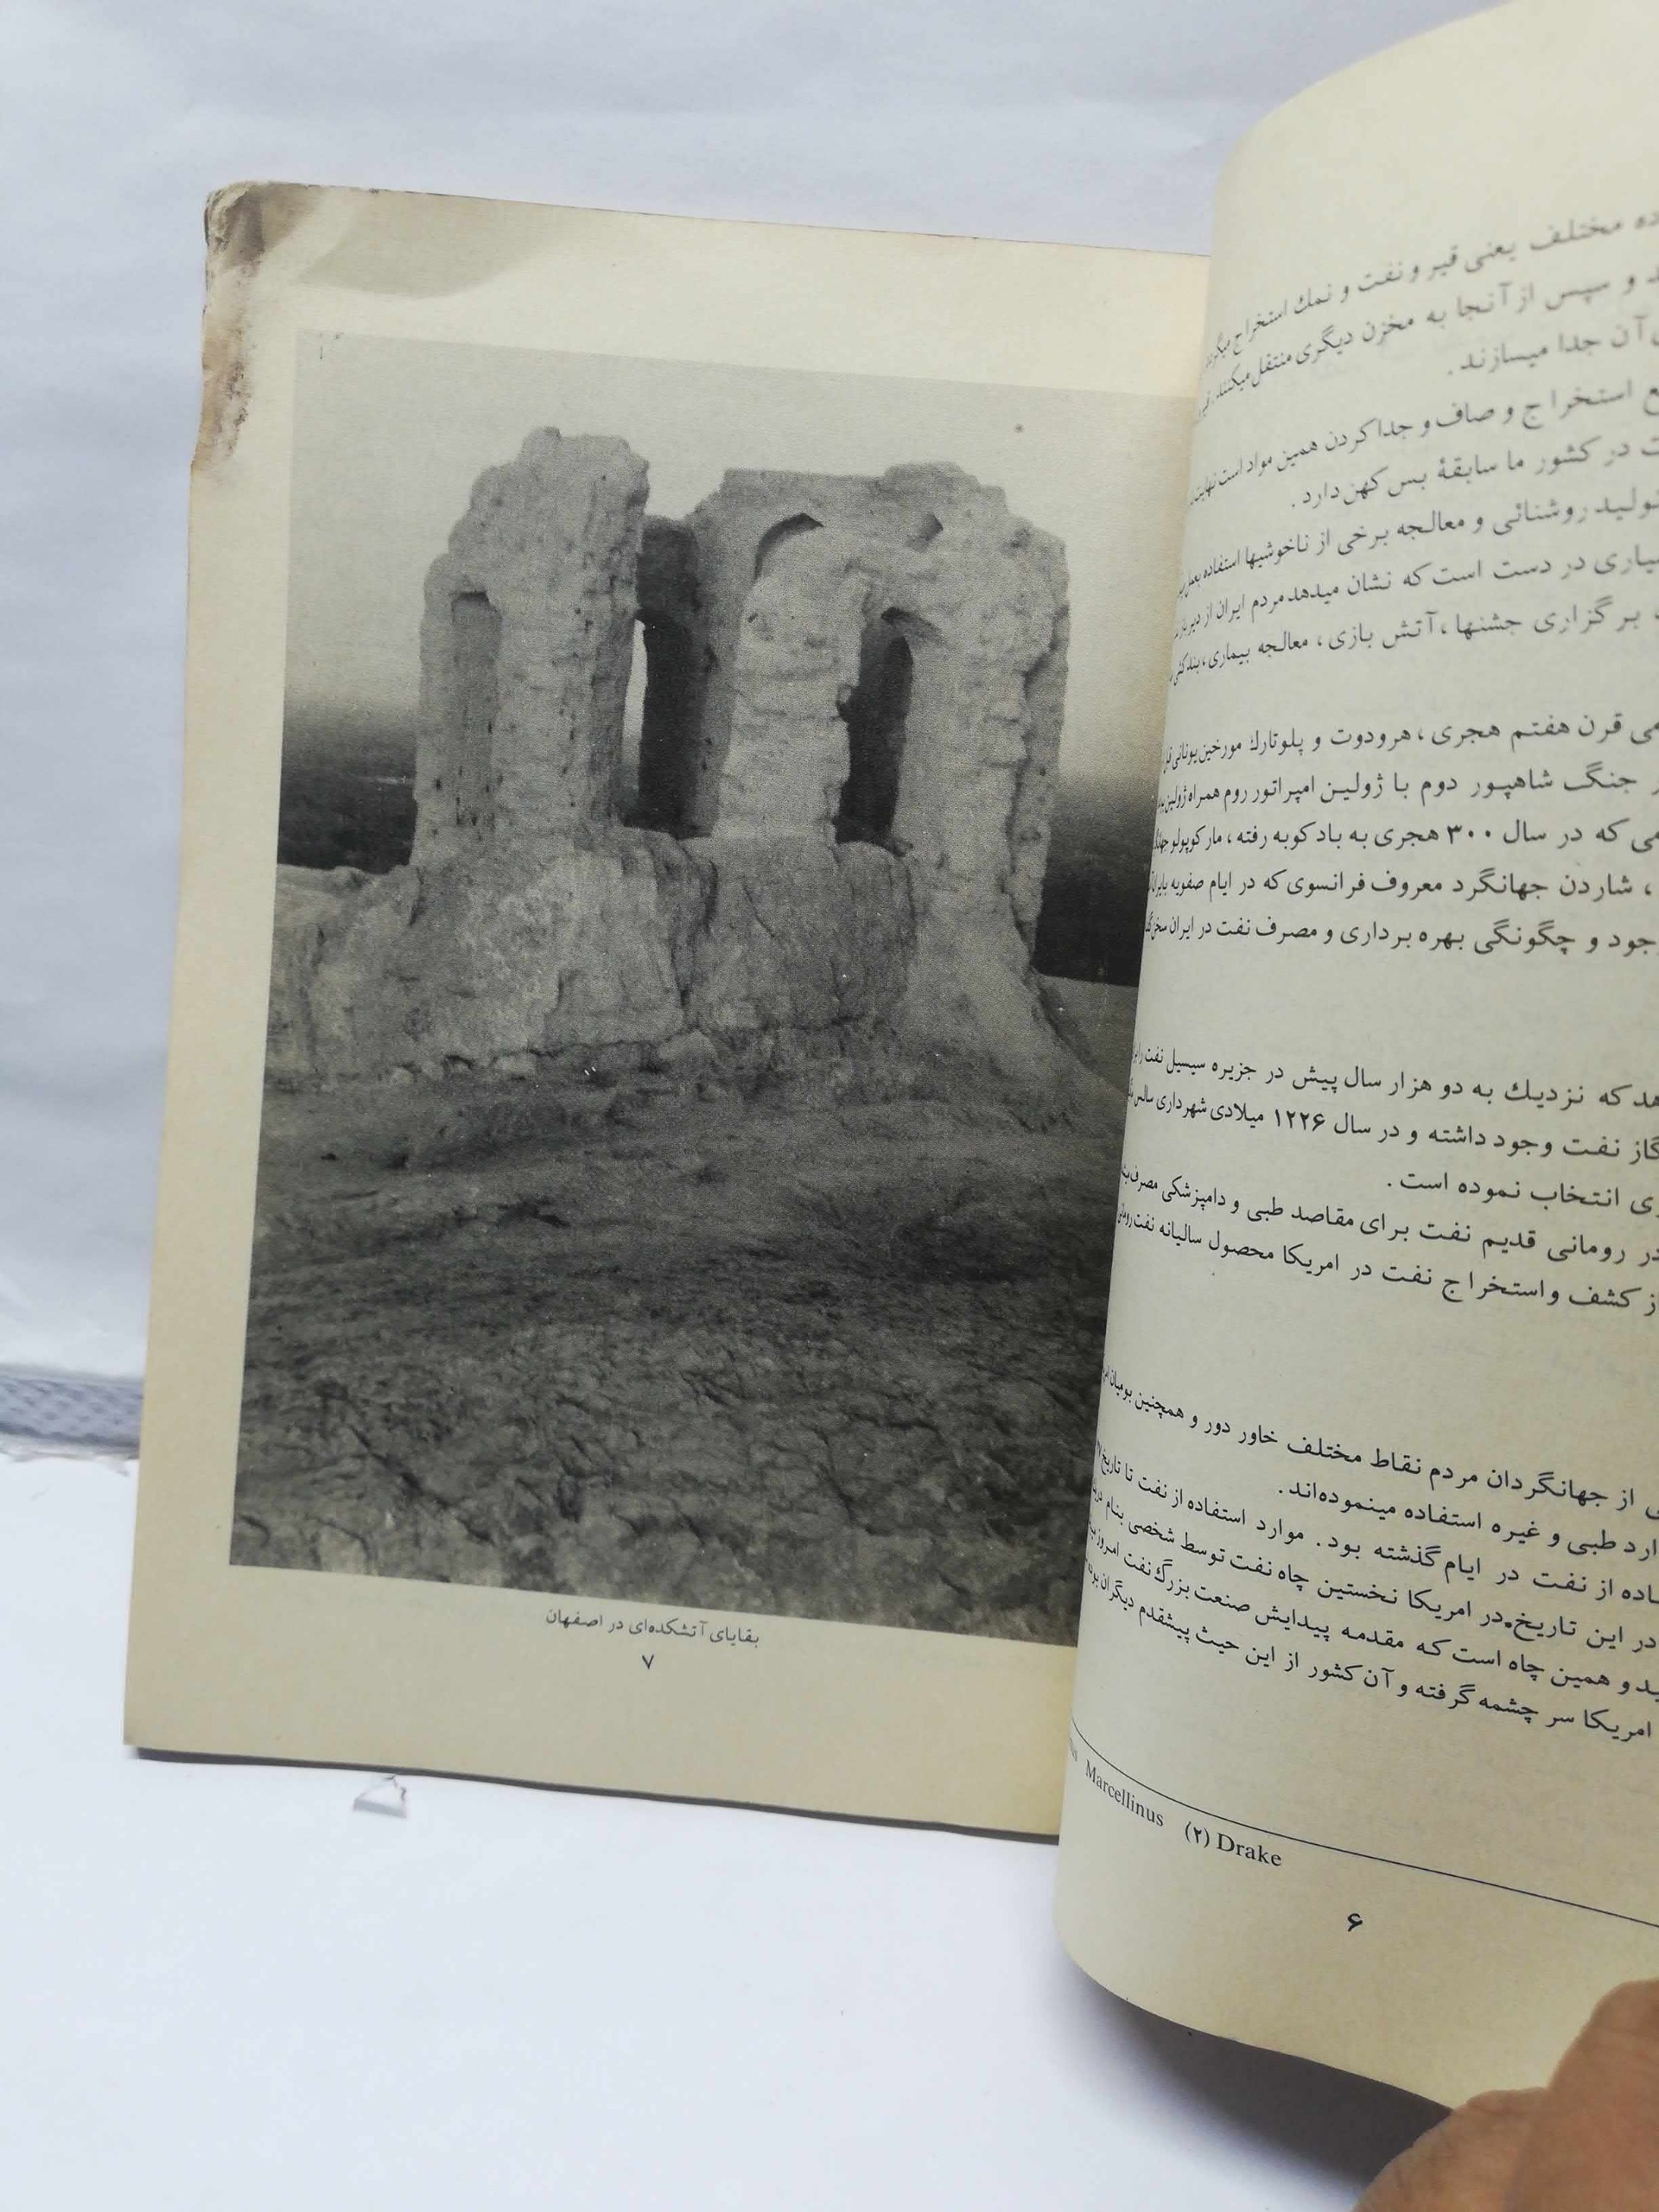 مختلف یعنی قیر و نفت و نمك استخراج
و سپس از آنجا به مخزن دیگری منتقل میکنند
آن جدا میسازند.
استخراج و صاف و جدا کردن همین مواد است
در کشور ما سابقهٔ بس کهن دارد.
تولید روشنائی و معالجه برخی از ناخوشیها استفاده
در دست است که نشان میدهد مردم ایران از
بر گزاری جشنها، آتش بازی، معالجه بیماری،
قرن هفتم هجری، هرودوت و پلوتارك مورخین یونانی
جنگ شاهپور دوم با ژولین امپراتور روم همراه ژولین
که در سال ۳۰۰ هجری به بادکوبه رفته، مارکوپولو
، شاردن جهانگرد معروف فرانسوی که در ایام صفویه
و چگونگی بهره برداری و مصرف نفت در ایران
که نزدیك به دو هزار سال پیش در جزیره سیسیل نفت
گاز نفت وجود داشته و در سال ۱۲۲۶ میلادی شهرداری
انتخاب نموده است.
در رومانی قدیم نفت برای مقاصد طبی و دامپزشکی
از کشف و استخراج نفت در امریکا محصول سالیانه نفت
از جهانگردان مردم نقاط مختلف خاور دور و همچنین بومیان
طبی و غیره استفاده مینموده‌اند.
از نفت در ایام گذشته بود. موارد استفاده از نفت تا تاریخ
در این تاریخ در امریکا نخستین چاه نفت توسط شخصی بنام
و همین چاه است که مقدمه پیدایش صنعت بزرگ نفت امروز
امریکا سر چشمه گرفته و آن کشور از این حیث پیشقدم دیگران
Marcellinus (۲) Drake
۶
بقایای آتشکده‌ای در اصفهان
۷